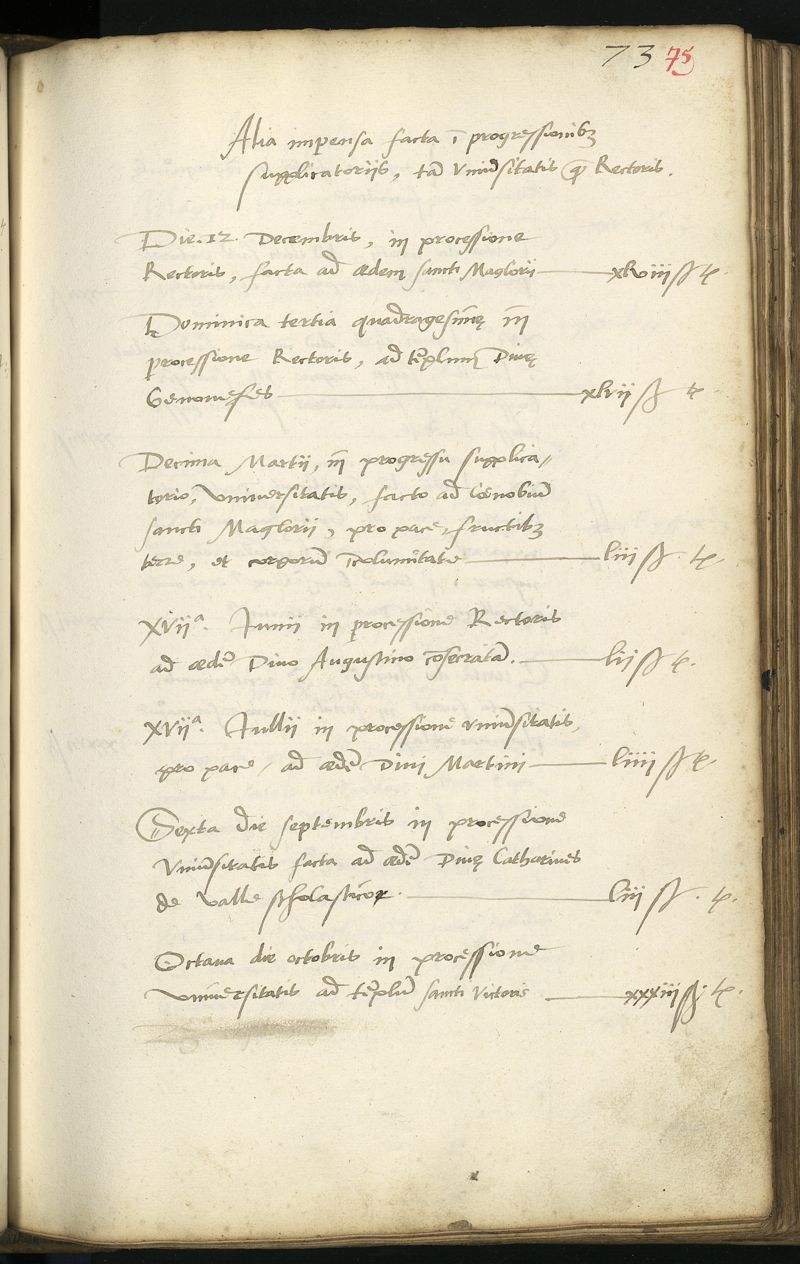 73 75
Alia impensa facta ī progressionibꝫ
supplicatoriis, tā Vniūsitatis q̄ Rectoris.
Die .12. Decembris, in processione
Rectoris, facta ad ædem sancti Maglorii — xlviii ß tꝭ.
Dominica tertia quadragesimę in
processione Rectoris, ad tēplum Diuę
Genouefes — xlvii ß tꝭ
Decima Martii, in progressu supplica〃
torio, vniuersitatis, facto ad Cœnobiū
sancti Maglorii, pro pace, fructibꝫ
terre, et corporū īcolumitate — liii ß. tꝭ
XVIIᵃ. Iunii in processione Rectoris
ad ædē Diuo Augustino cōsecratā. — lii ß tꝭ.
XVIIᵃ. Iullii in processione vniūsitatis,
pro pace, ad ædē Diui Martini — liiii ß tꝭ
Sexta die septembris in processione
Vniūsitatis facta ad ædē Diuę Catharines
de valle scholasticoꝝ. — liii ß. tꝭ.
Octaua die octobris in processione
vniuersitatis ad tēplū sancti Victoris — xxxiii ß. tꝭ.